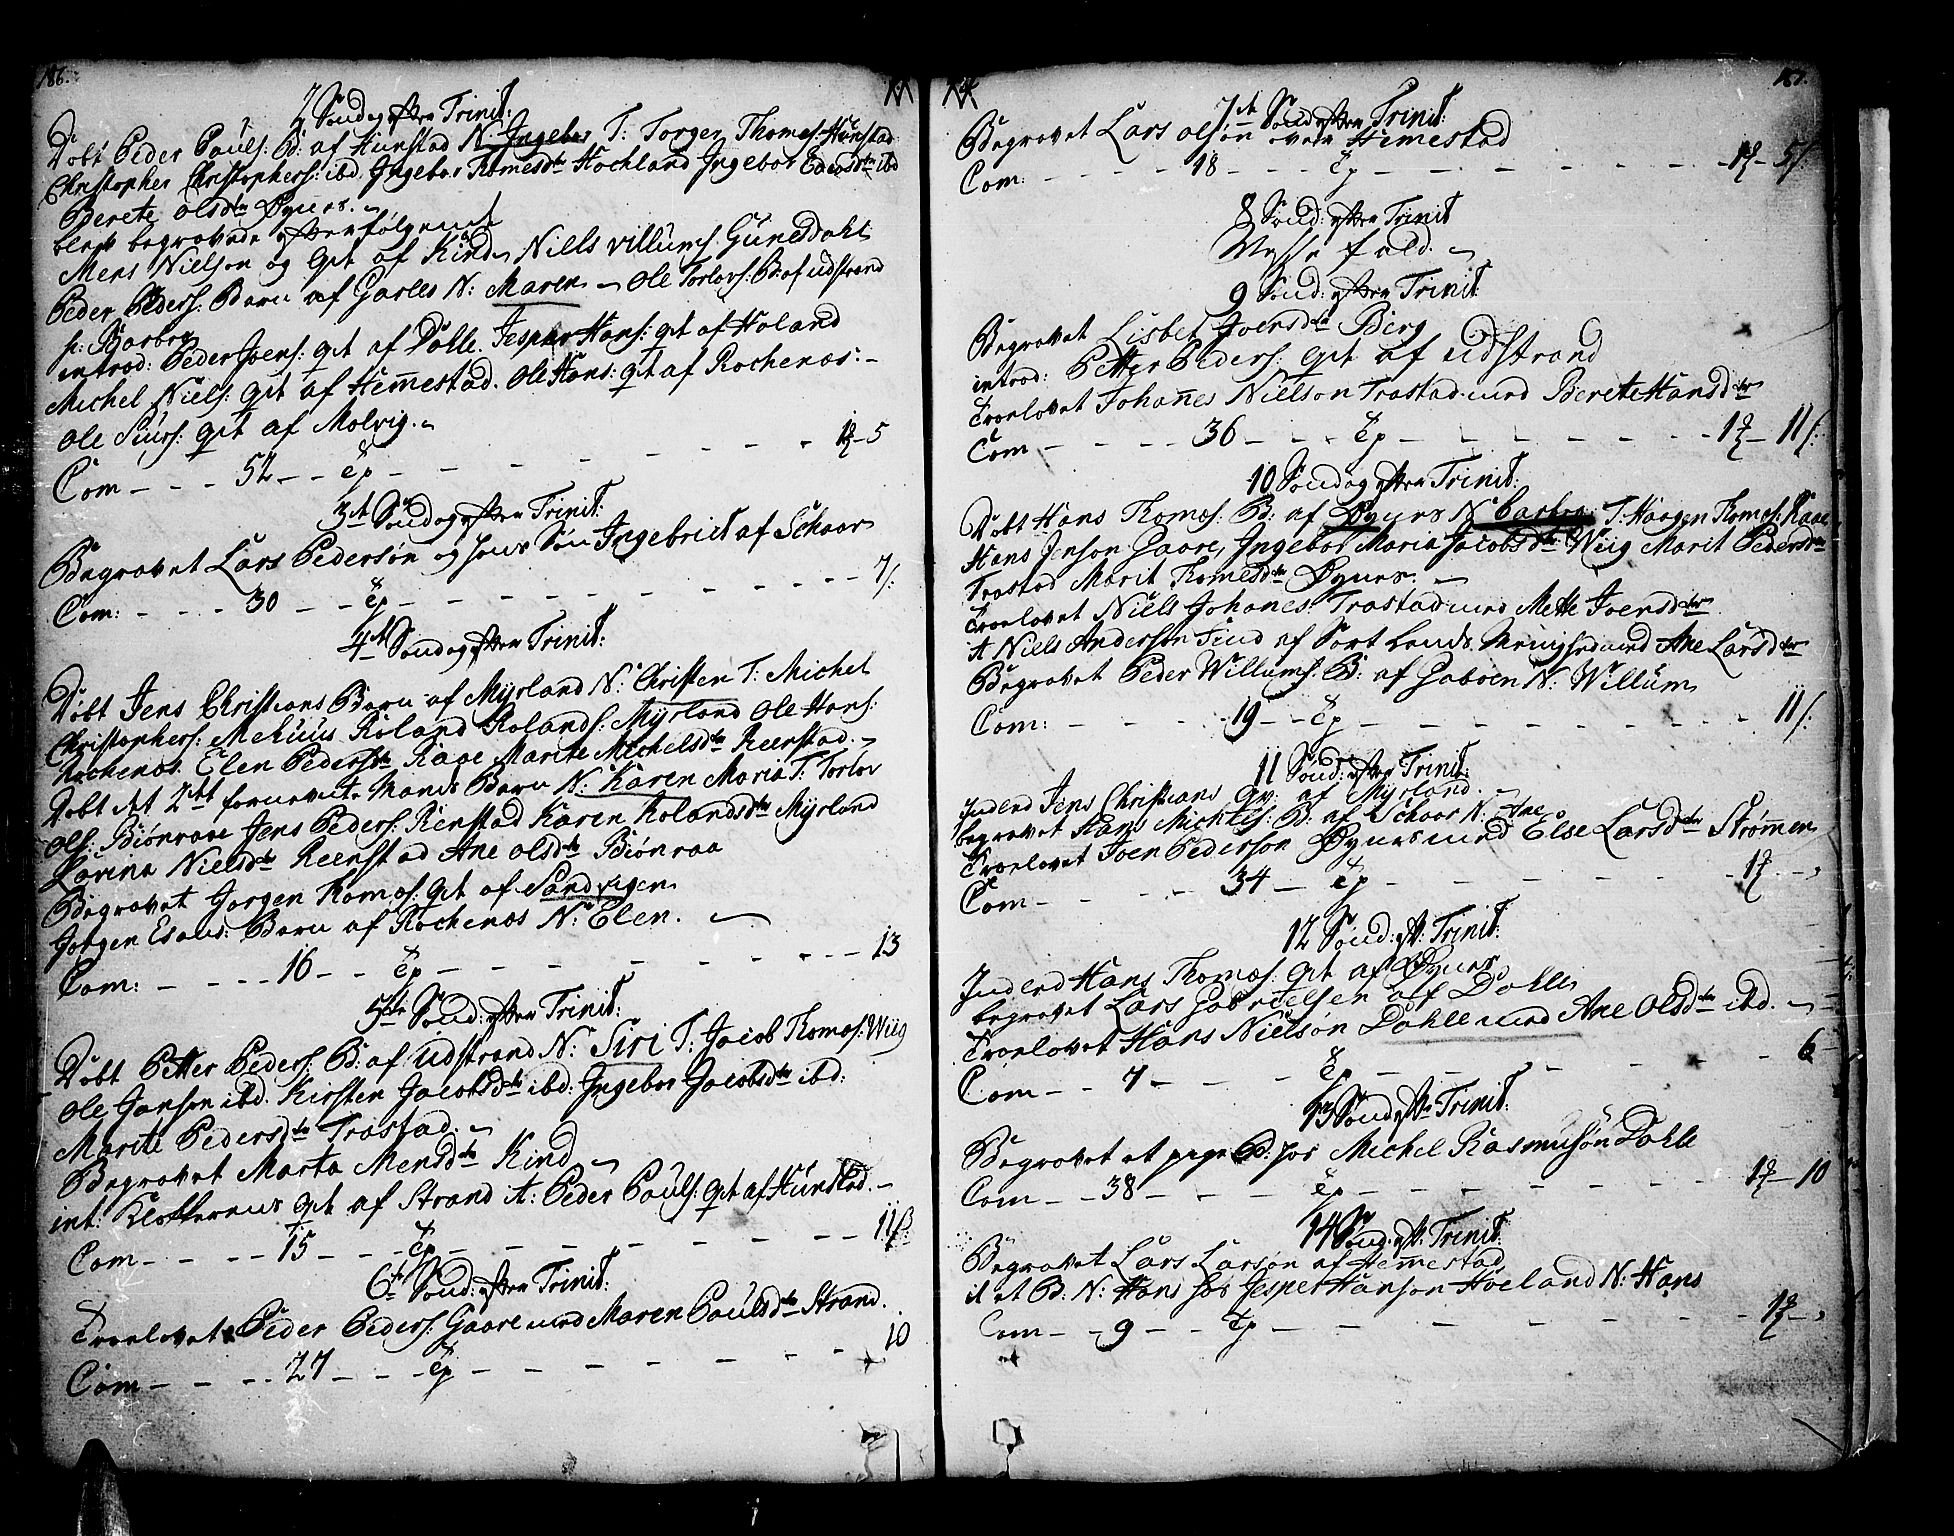 186.
2 Søndag efter Trinit:
Døbt Peder Pouls: B: af Hunstad N: Ingebor T: Torger Thomes: Hunstad
Christopher Christophers: ibd. Ingebor Thomesdtr Hochland Ingebor ibd
Berete Olsdtr Øynes.
blev begravede efterfølgende
Mens Nielsøn og qvt af Kind Niells Villums: Gunesdahl
Peder Peders: Barn af Garies N: Maren Ole Torlovs: B: af udstrand
N: Barbro
introd: Peder Joens: qvt af Dolle. Jesper Hans: qvt af Holand
Michel Niels: qvt af Hemestad. Ole Hans: qvt af Rochenæs:
Ole Siurs: qvt af Molvig.
Com 52 Ep 1 5
3de Søndag efter Trinit:
Begravet Lars Pedersøn og hans Søn Ingebrict af Schaar
Com: 30 Ep 7 /:
4de Søndag efter Trinit:
Døbt Jens Christians Barn af Myrland N: Christen T: Michel
Christophers: Mehuus Roland Rolands: Myrland Ole Hans:
Rochenæs Elen Pedersdtr Raae Marite Michelsdtr Reenstad.
Døbt det 2det fornevnte Mands Barn N: Karen Maria T: Torlov
Ols: Biønraae Jens Peders: Renstad Karen Rolandsdtr Myrland
Karina Nielsdtr Reenstad Ane Olsdtr Biønraa
Begravet Jorgen Tomæs: qvt af Sandvigen
Jorgen Barn af Rochenæs N: Elen.
Com: 16 Ep 13
5te Sønd: efter Trinit:
Døbt Petter Peders: B: af Udstrand N: Siri T: Jacob Thomæs: Wiig
Ole Jansøn ibd. Kirsten Jacobsdtr ibd: Ingebor Jacobsdtr ibd:
Marite Pedersdtr Trastad.
Begravet Marta Mensdtr Kind
int: Klokkerens qvt af Strand it: Peder Pouls: qvt af Hunstad.
Com 15 Ep 11 /:
6te Sønd: efter Trinit:
Troelovet Peder Peders: Gaare med Maren Poulsdtr Strand.
Com 27 Ep 10
187.
7de Sønd efter Trinit:
Begravet Lars Olsøn Hemestad
Com: 18 Ep 1 5 /:
8 Sønd: efter Trinit
Messe fald.
9 Sønd: efter Trinit
Begravet Lisbet Joersdtr Berg
introd: Petter Peders: qvt af udstrand
Troelovet Johanes Nielsøn Trastad med Berete Hansdtr
Com 36 Ep 1 11 /:
10 Søndag efter Trinit:
Døbt Hans Thomæs: B: af Øynes N: Barbro T: Haagen Thomæs: Raae
Hans Jensøn Gaare, Ingebor Maria Jacobsdtr Wiig Marit Pedersdtr
Trastad Marit Thomesdtr Øynes.
Troelovet Niels Johanes: Trastad med Mette Joensdtr
it Niels Andersøn Find af Sortlands Menighed med Ane Larsdtr
Begravet Peder Willums: B: af Gaboen N: Willum
Com: 19 Ep 11 /:
11 Sønd: efter Trinit:
Inderd Jens Christians qv: af Myrland.
begravet Hans Michels: B: af Schoor N: Ane
Troelovet Joen Pedersøn Øynes med Else Larsdtr Strømmen
Com 34 Ep 1
12 Sønd: eft: Trinit:
Inderd Hans Thomæs: qvt af Øynes
begravet Lars Gabrielsen af Dahle
Troelovet Hans Nielsøn Dahle med Ane Olsdtr ibd.
Com 7 Ep 6
13 Sønd efter Trinit:
Begravet et pige B: hos Michel Rasmusøn Dahle
Com 38 Ep 1 10
14 Sønd: eft: Trinit:
Begravet Lars Larsøn af Hemestad
it et B: N: Hans hos Jesper Hansøn Hoeland N: Hans
Com 9 Ep 1